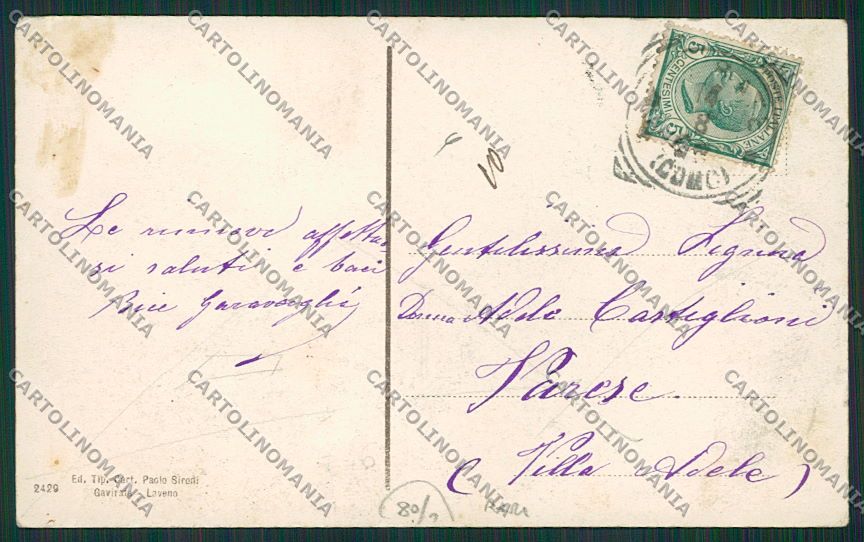 Le rinnovo affettuo
si saluti e baci
Bice Garavaglia
Ed. Tip. Cart. Paolo Sironi
Gavirate - Laveno
2429
10
POSTE ITALIANE
CENTESIMI
5 5
(COMO)
Gentilissima Signora
Donna Adele Castiglioni
Varese
(Villa Adele)
80/2
RARA
CARTOLINOMANIA